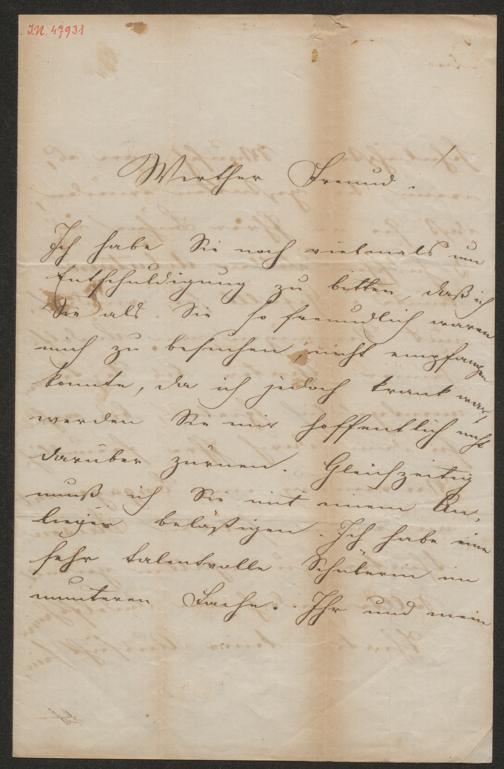 I.N. 47931
Werther Freund.
Ich habe Sie noch vielmals um
Entschuldigung zu bitten, daß ich
Sie als Sie so freundlich waren
mich zu besuchen, nicht empfangen
konnte, da ich jedoch krank war,
werden Sie mir hoffentlich nicht
darüber zürnen. Gleichzeitig
muß ich Sie mit einem An-
liegen belästigen. Ich habe eine
sehr talentvolle Schülerin im
munteren Fache. Ihr und mein